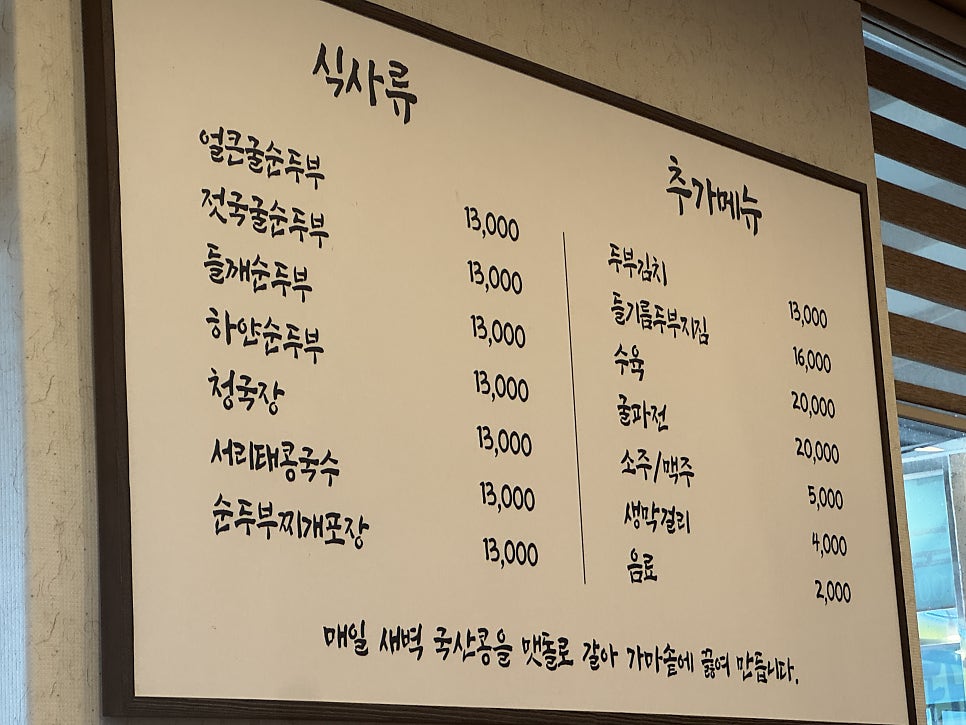 식사류
얼큰굴순두부 13,000
젓국굴순두부 13,000
들깨순두부 13,000
하얀순두부 13,000
청국장 13,000
서리태콩국수 13,000
순두부찌개포장 13,000
추가메뉴
두부김치 13,000
들기름두부지짐 16,000
수육 20,000
굴파전 20,000
소주/맥주 5,000
생막걸리 4,000
음료 2,000
매일 새벽 국산콩을 맷돌로 갈아 가마솥에 끓여 만듭니다.